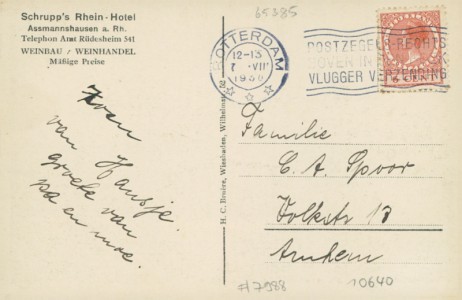 Schrupp's Rhein-Hotel
Assmannshausen a. Rh.
Telephon Amt Rüdesheim 541
WEINBAU / WEINHANDEL
Mäßige Preise
65385
ROTTERDAM
12-13
VII
POSTZEGELS RECHTS
BOVEN IN
VLUGGER VERZENDING
CENT
van Hansje.
groete van
pa en moe.
H. C. Broöre, Wiesbaden, Wilhelmstr.
Familie
C. A. Spoor
Arnhem
#7988
10640